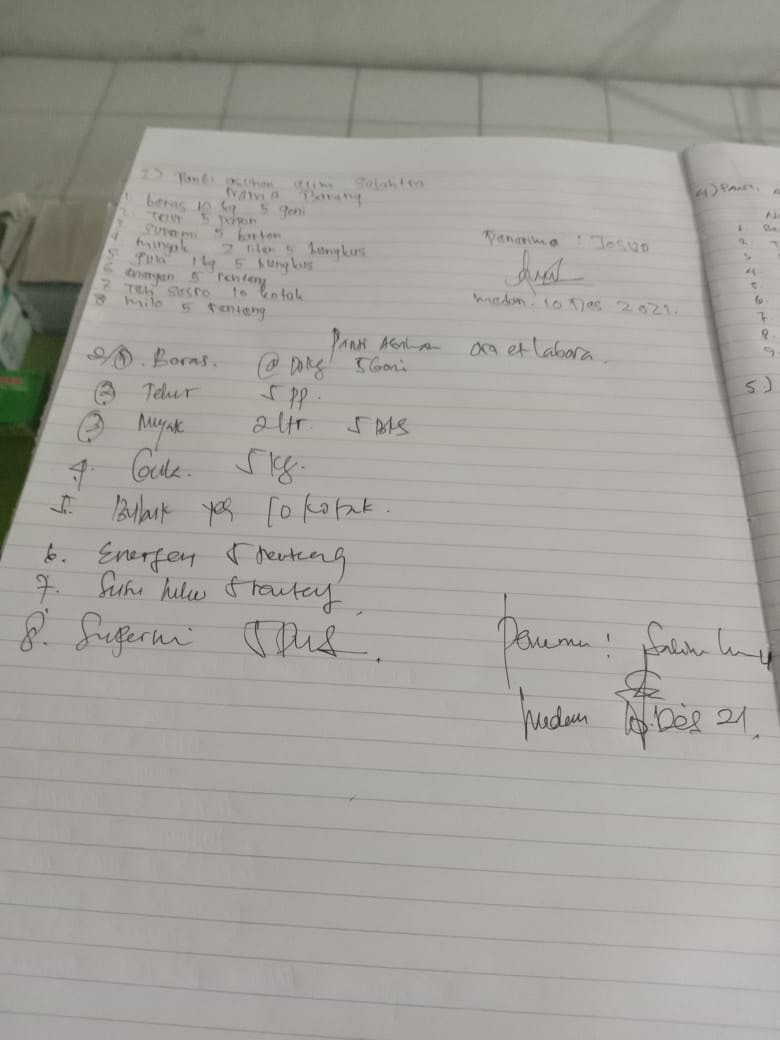 2) Panti asuhan
Nama Barang
1. beras 10 kg 5 goni
2. Telur 5 papan
3 5 karton
4 mingak 2 liter 5 bungkus
5 gula 1 kg 5 bungkus
6 energen 5 renteng
7 Teh sosro 10 kotak
8 milo 5 renteng
Penerima : Josua
medan. 10 Des 2021.
Panti Asuhan ora et labora
Beras. @ 10kg 5 Goni
② Telur 5 pp.
③ 2 ltr. 5 Bks
4. Gula. 5 kg.
5. 10 kotak.
6. Energen 5 renteng
7. Susu 5 renteng
8. 5 Dus.
Penerima :
Medan 10. Des 21.
4) Panti
1.
2.
3
4.
5.
6.
7.
8.
9
5.)